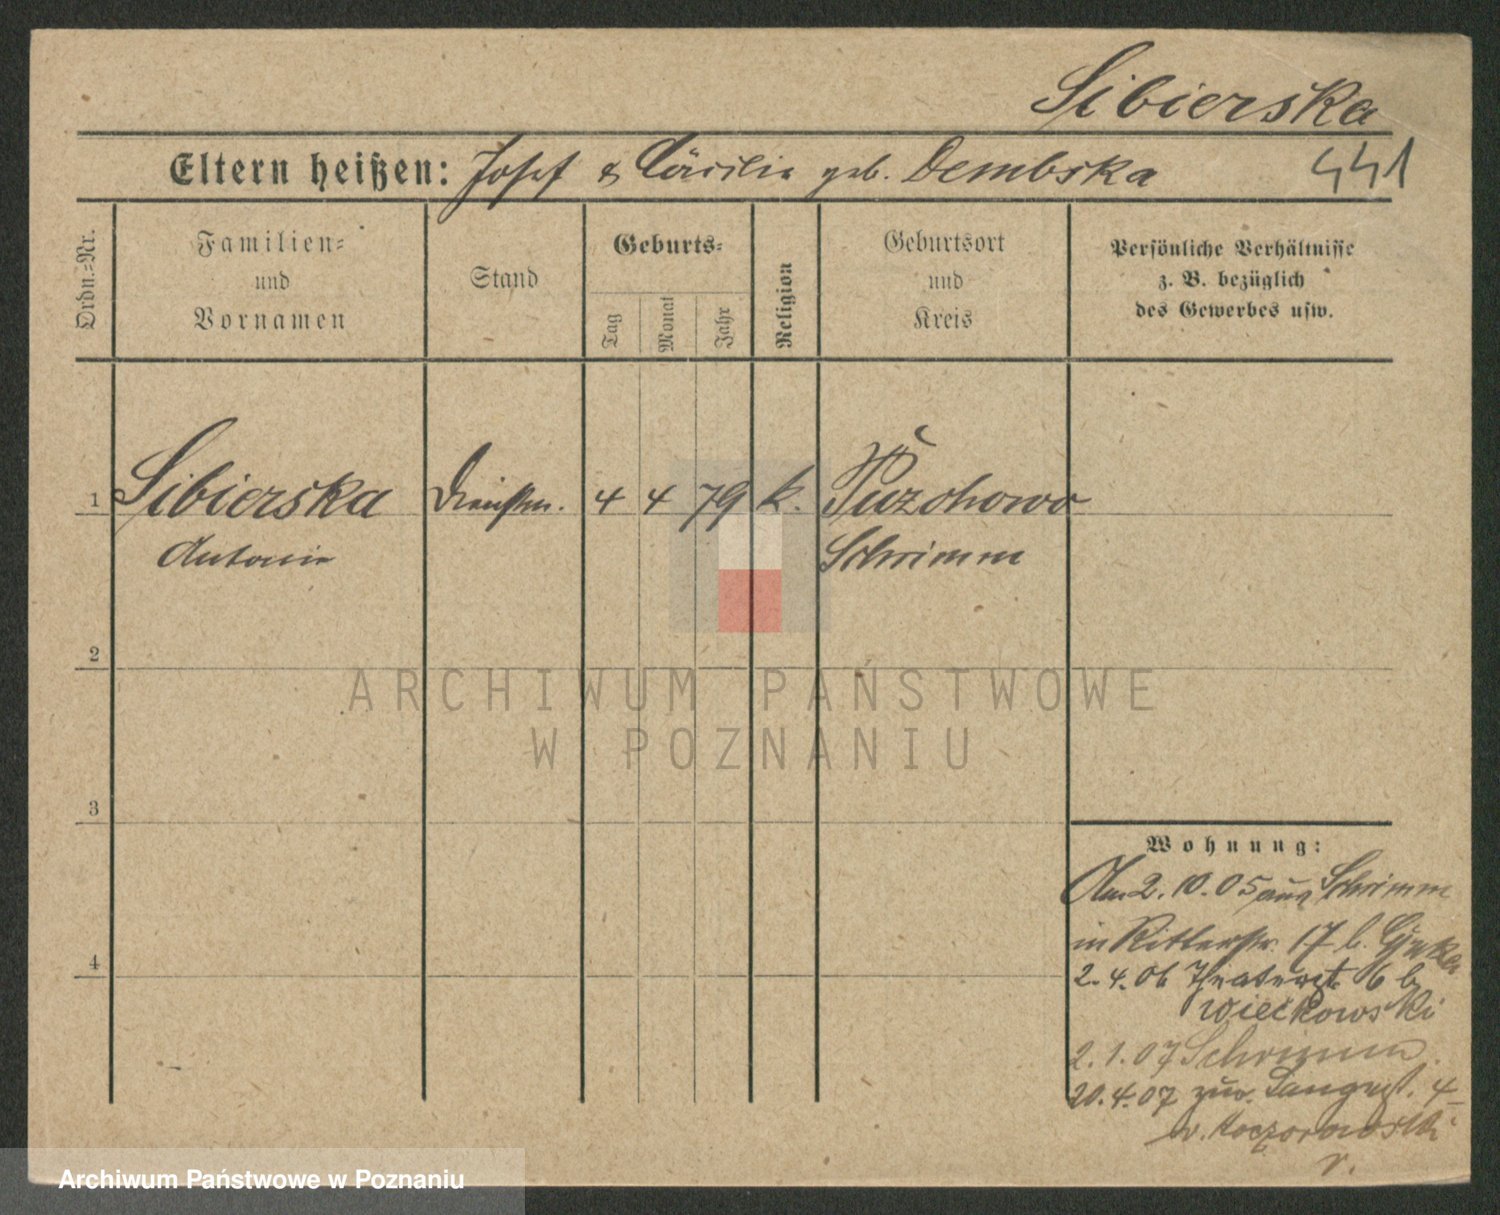 Sibierska
Eltern heißen: Josef & Cäcilia geb. Dembska 441
Ordn.=Nr.
Familien=
und
Vornamen
Stand
Geburts=
Tag
Monat
Jahr
Religion
Geburtsort
und
Kreis
Persönliche Verhältnisse
z. B. bezüglich
des Gewerbes usw.
1 Sibierska Dienstm. 4 4 79 k. Puzchowo
Antonie Schrimm
2
ARCHIWUM PAŃSTWOWE
W POZNANIU
3
Wohnung:
Am 2.10.05 aus Schrimm
in Ritterstr. 17 b.
4
2.4.06 Theaterst. 6 b
Wieckowski
2.1.07 Schrimm.
20.4.07 zur. Langest. 4
v. Koczorowski
v.
Archiwum Państwowe w Poznaniu